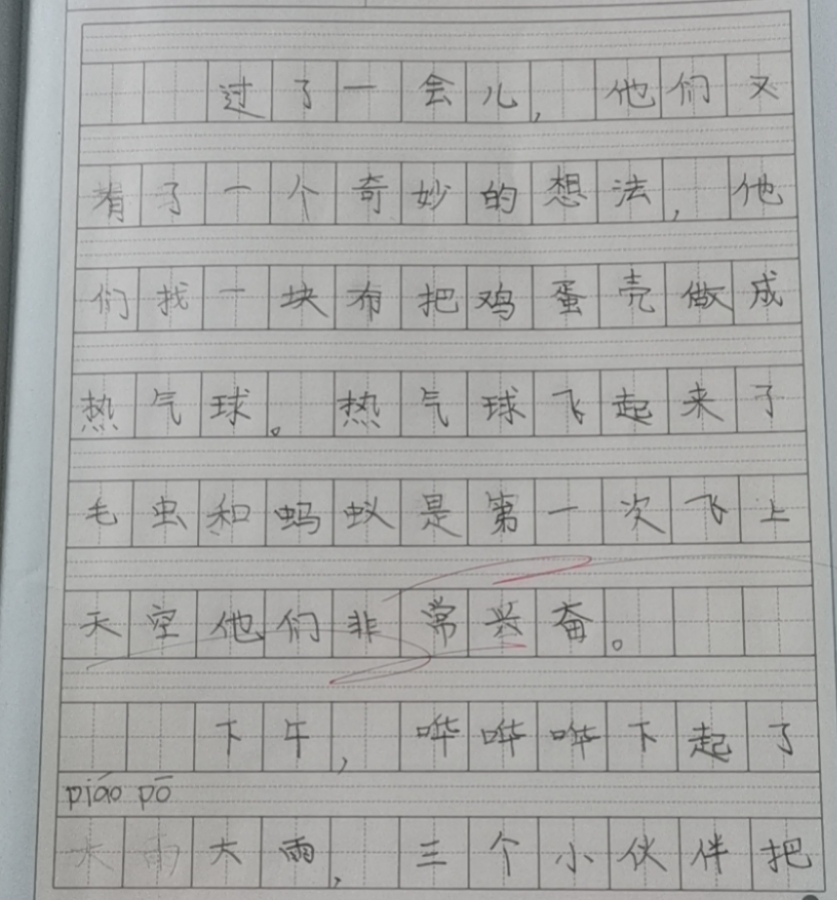 过了一会儿，他们又
有了一个奇妙的想法，他
们找一块布把鸡蛋壳做成
热气球。热气球飞起来了
毛虫和蚂蚁是第一次飞上
天空他们非常兴奋。
下午，哗哗哗下起了
piáo pō
大雨大雨，三个小伙伴把